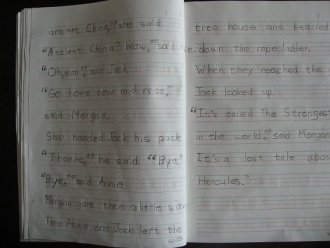 ancient China," she said.
"Ancient China? Wow," said
down the rope ladder.
"Oh, man," said Jack
"Go home now and rest,"
said Morgan.
She handed Jack his
"Thanks," he said. "Bye"
"Bye," said Annie.
Morgan gave them a little
Then Annie and Jack left the
tree house and
When they reached the
Jack looked up.
"It's called The Strongest
in the world," said Morgan
It's a lost tale about
Hercules."